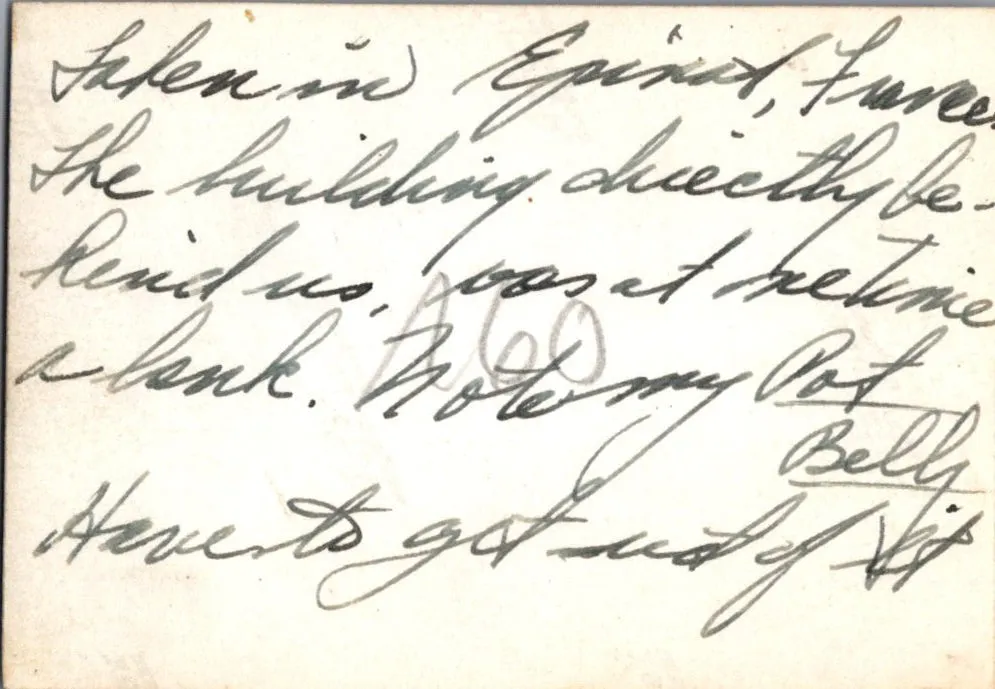 Taken in Epinal, France.
The building directly be-
hind us, was at one time
a bank. Note my Pot
Belly
Have to get rid of it
A60